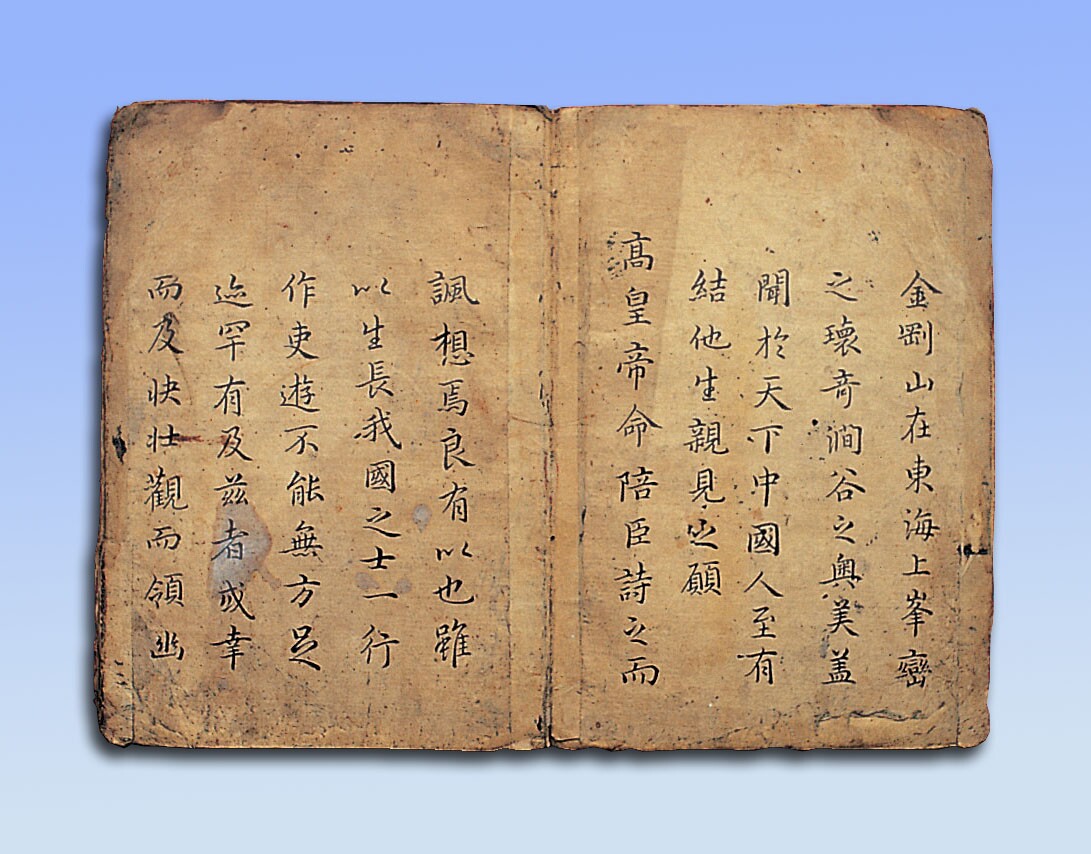 金剛山在東海上峯巒
之瓌奇澗谷之奧美盖
聞於天下中國人至有
結他生親見之願
高皇帝命陪臣詩之而
諷想焉良有以也雖
以生長我國之士一行
作吏遊不能無方足
迹罕有及兹者或幸
而及快壯觀而領幽